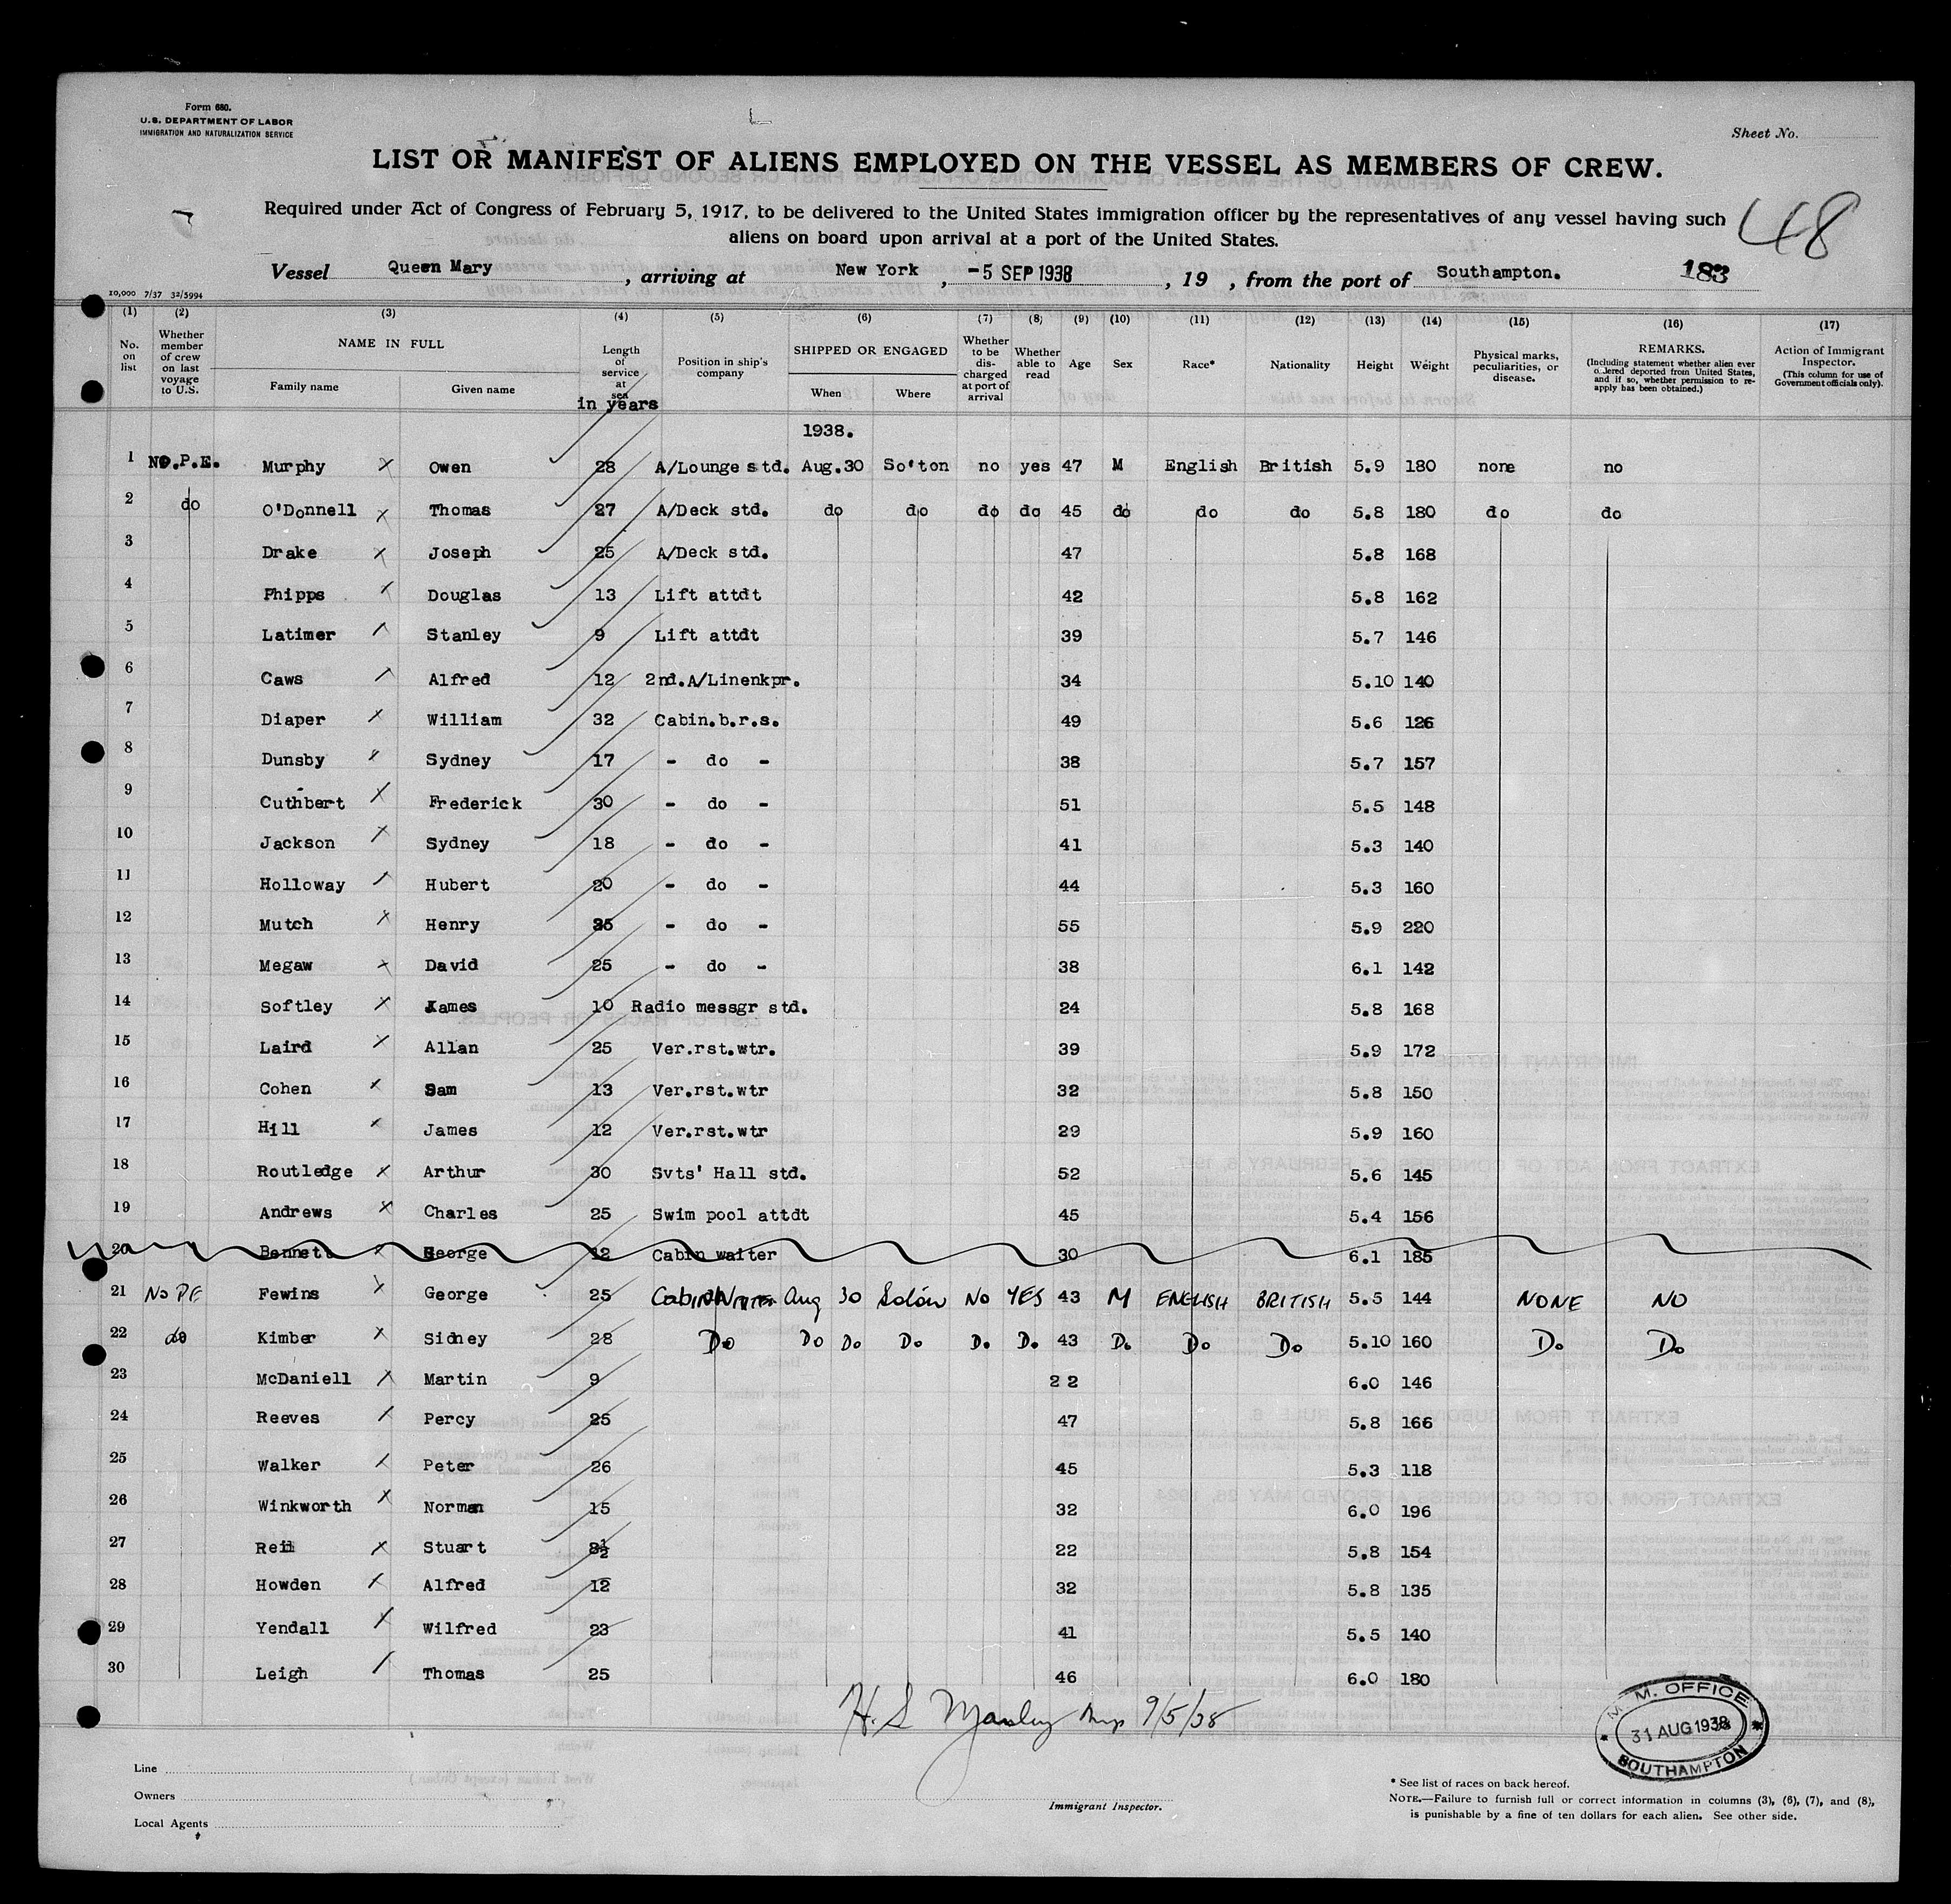 Form 680.
U.S. DEPARTMENT OF LABOR
IMMIGRATION AND NATURALIZATION SERVICE
Sheet No.
LIST OR MANIFEST OF ALIENS EMPLOYED ON THE VESSEL AS MEMBERS OF CREW.
Required under Act of Congress of February 5, 1917, to be delivered to the United States immigration officer by the representatives of any vessel having such
aliens on board upon arrival at a port of the United States.
48
Vessel Queen Mary, arriving at New York, -5 SEP 1938, 19 , from the port of Southampton. 183
10,000 7/37 32/5994
(1) (2) (3) (4) (5) (6) (7) (8) (9) (10) (11) (12) (13) (14) (15) (16) (17)
No. on list
Whether member of crew on last voyage to U.S.
NAME IN FULL
Family name Given name
Length of service at sea in years
Position in ship's company
SHIPPED OR ENGAGED
When Where
Whether to be discharged at port of arrival
Whether able to read
Age
Sex
Race*
Nationality
Height
Weight
Physical marks, peculiarities, or disease.
REMARKS.
(Including statement whether alien ever ordered deported from United States, and if so, whether permission to reapply has been obtained.)
Action of Immigrant Inspector.
(This column for use of Government officials only).
1938.
1 NO.P.E. Murphy Owen 28 A/Lounge std. Aug.30 So'ton no yes 47 M English British 5.9 180 none no
2 do O'Donnell Thomas 27 A/Deck std. do do do do 45 do do do 5.8 180 do do
3 Drake Joseph 25 A/Deck std. 47 5.8 168
4 Phipps Douglas 13 Lift attdt 42 5.8 162
5 Latimer Stanley 9 Lift attdt 39 5.7 146
6 Caws Alfred 12 2nd.A/Linenkpr. 34 5.10 140
7 Diaper William 32 Cabin.b.r.s. 49 5.6 126
8 Dunsby Sydney 17 - do - 38 5.7 157
9 Cuthbert Frederick 30 - do - 51 5.5 148
10 Jackson Sydney 18 - do - 41 5.3 140
11 Holloway Hubert 20 - do - 44 5.3 160
12 Mutch Henry 35 - do - 55 5.9 220
13 Megaw David 25 - do - 38 6.1 142
14 Softley James 10 Radio messgr std. 24 5.8 168
15 Laird Allan 25 Ver.rst.wtr. 39 5.9 172
16 Cohen Sam 13 Ver.rst.wtr 32 5.8 150
17 Hill James 12 Ver.rst.wtr 29 5.9 160
18 Routledge Arthur 30 Svts' Hall std. 52 5.6 145
19 Andrews Charles 25 Swim pool attdt 45 5.4 156
20 Bennett George 12 Cabin waiter 30 6.1 185
21 No PE Fewins George 25 Cabin Aug 30 No YES 43 M ENGLISH BRITISH 5.5 144 NONE NO
22 do Kimber Sidney 28 Do Do Do Do Do. Do. 43 Do. Do Do 5.10 160 Do. Do
23 McDaniell Martin 9 22 6.0 146
24 Reeves Percy 25 47 5.8 166
25 Walker Peter 26 45 5.3 118
26 Winkworth Norman 15 32 6.0 196
27 Reid Stuart 8½ 22 5.8 154
28 Howden Alfred 12 32 5.8 135
29 Yendall Wilfred 23 41 5.5 140
30 Leigh Thomas 25 46 6.0 180
9/5/38
M. M. OFFICE
31 AUG 1938
SOUTHAMPTON
Line
Owners
Local Agents
Immigrant Inspector.
* See list of races on back hereof.
NOTE.—Failure to furnish full or correct information in columns (3), (6), (7), and (8),
is punishable by a fine of ten dollars for each alien. See other side.